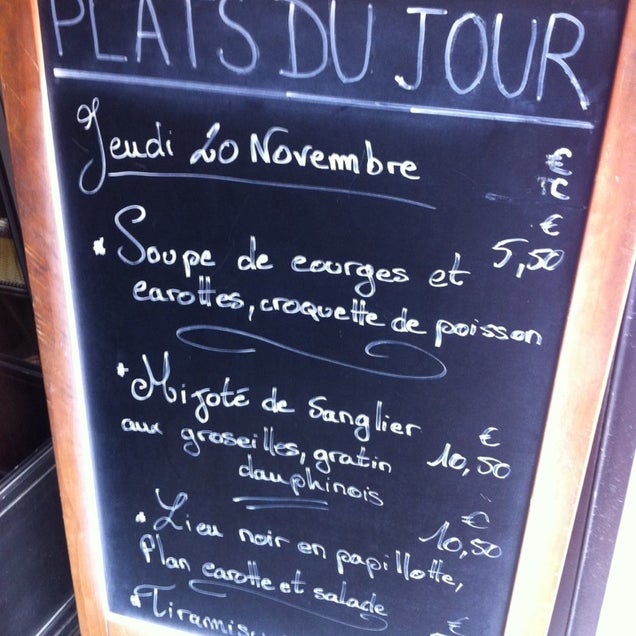 PLATS DU JOUR
Jeudi 20 Novembre €
TC
€
* Soupe de courges et 5,50
carottes, croquette de poisson
* Mijoté de Sanglier €
aux groseilles, gratin 10,50
dauphinois
€
* Lieu noir en papillotte, 10,50
Plan carotte et salade
* Tiramis €